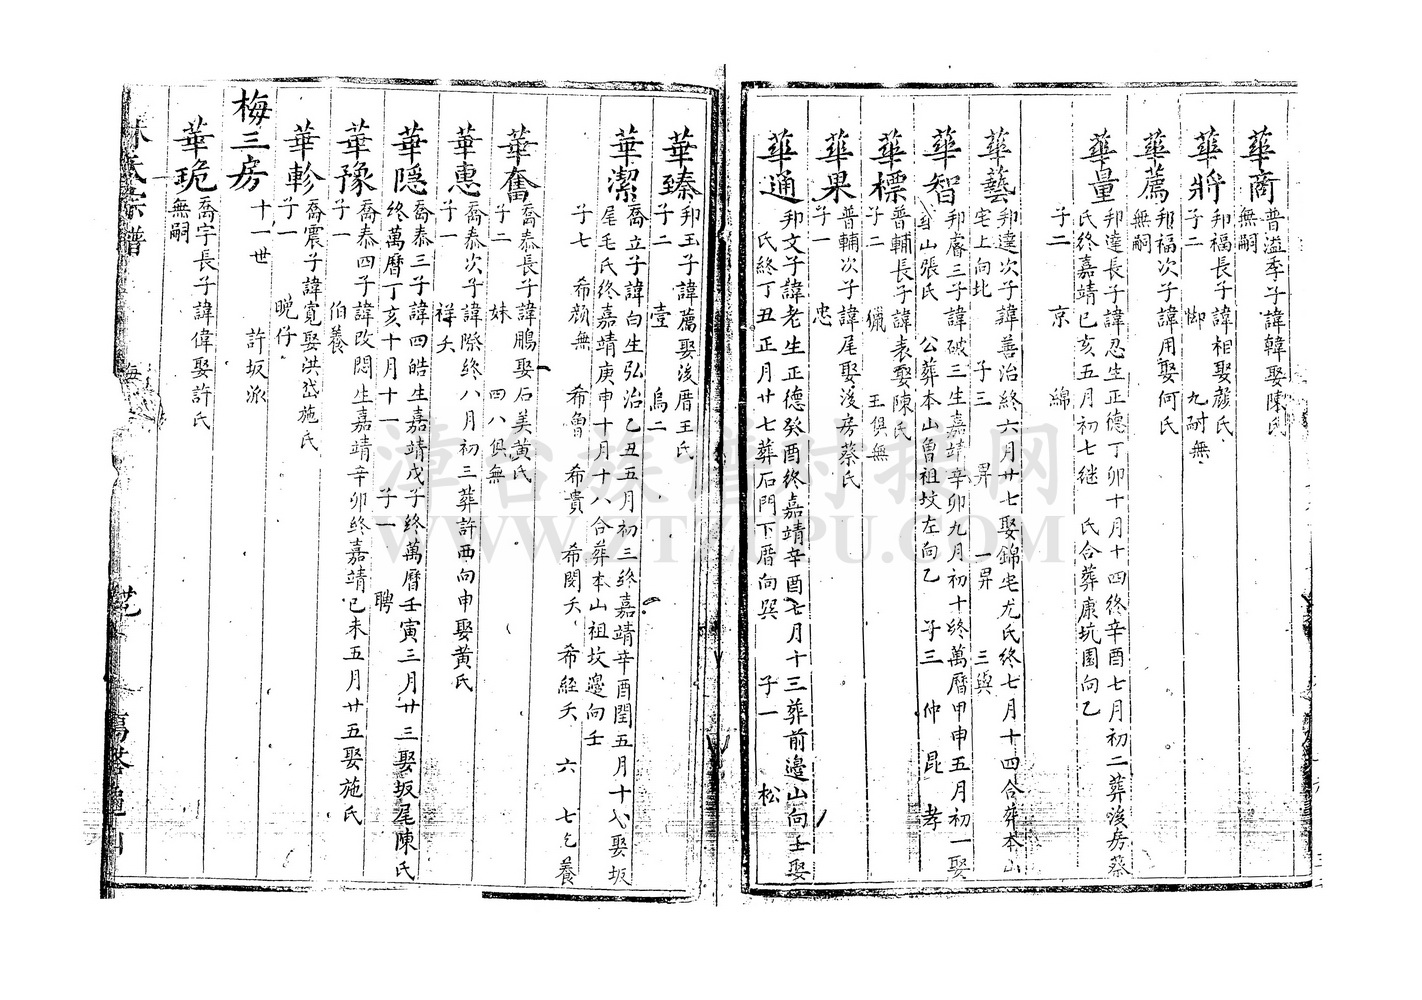 華商
普溢季子諱韓娶陳氏
無嗣
華將
邦福長子諱相娶顏氏
子二 御 九耐無
華薦
邦福次子諱用娶何氏
無嗣
華量
邦達長子諱忍生正德丁卯十月十四終辛酉七月初二葬後房蔡
氏終嘉靖己亥五月初七继 氏合葬康坑園向乙
子二 京 綿
華藝
邦達次子諱善治終六月廿七娶錦宅尤氏終七月十四合葬本山
宅上向北 子三 昇 一昇 三與
華智
邦睿三子諱破三生嘉靖辛卯九月初十終萬曆甲申五月初一娶
山張氏 公葬本山魯祖坟左向乙 子三 仲 昆 孝
華標
普輔長子諱表娶陳氏
子二 獵 王俱無
華果
普輔次子諱尾娶後房蔡氏
子一 忠
華通
邦文子諱老生正德癸酉終嘉靖辛酉七月十三葬前邊山向壬娶
氏終丁丑正月廿七葬石門下厝向巽 子一 松
華臻
邦玉子諱薦娶後厝王氏
子二 壹 烏二
華潔
喬立子諱白生弘治乙丑五月初三終嘉靖辛酉閏五月十八娶坂
尾毛氏終嘉靖庚申十月十八合葬本山祖坟邊向壬
子七 希顏無 希魯 希貴 希閔夭 希經夭 六 七乞養
華奮
喬泰長子諱鵬娶石美黃氏
子二 妹 四八俱無
華惠
喬泰次子諱際終八月初三葬許西向申娶黃氏
子一 祥夭
華隱
喬泰三子諱四皓生嘉靖戊子終萬曆壬寅三月廿三娶坂尾陳氏
終萬曆丁亥十月十一 子一 聘
華豫
喬泰四子諱改悶生嘉靖辛卯終嘉靖己未五月廿五娶施氏
子一 伯養
華軫
喬震子諱寬娶洪岱施氏
子一 晚仔
梅三房
十一世 許坂派
華珗
喬宇長子諱偉娶許氏
無嗣
林氏宗譜
漳台族谱对接网
WWW.ZTZUPU.COM